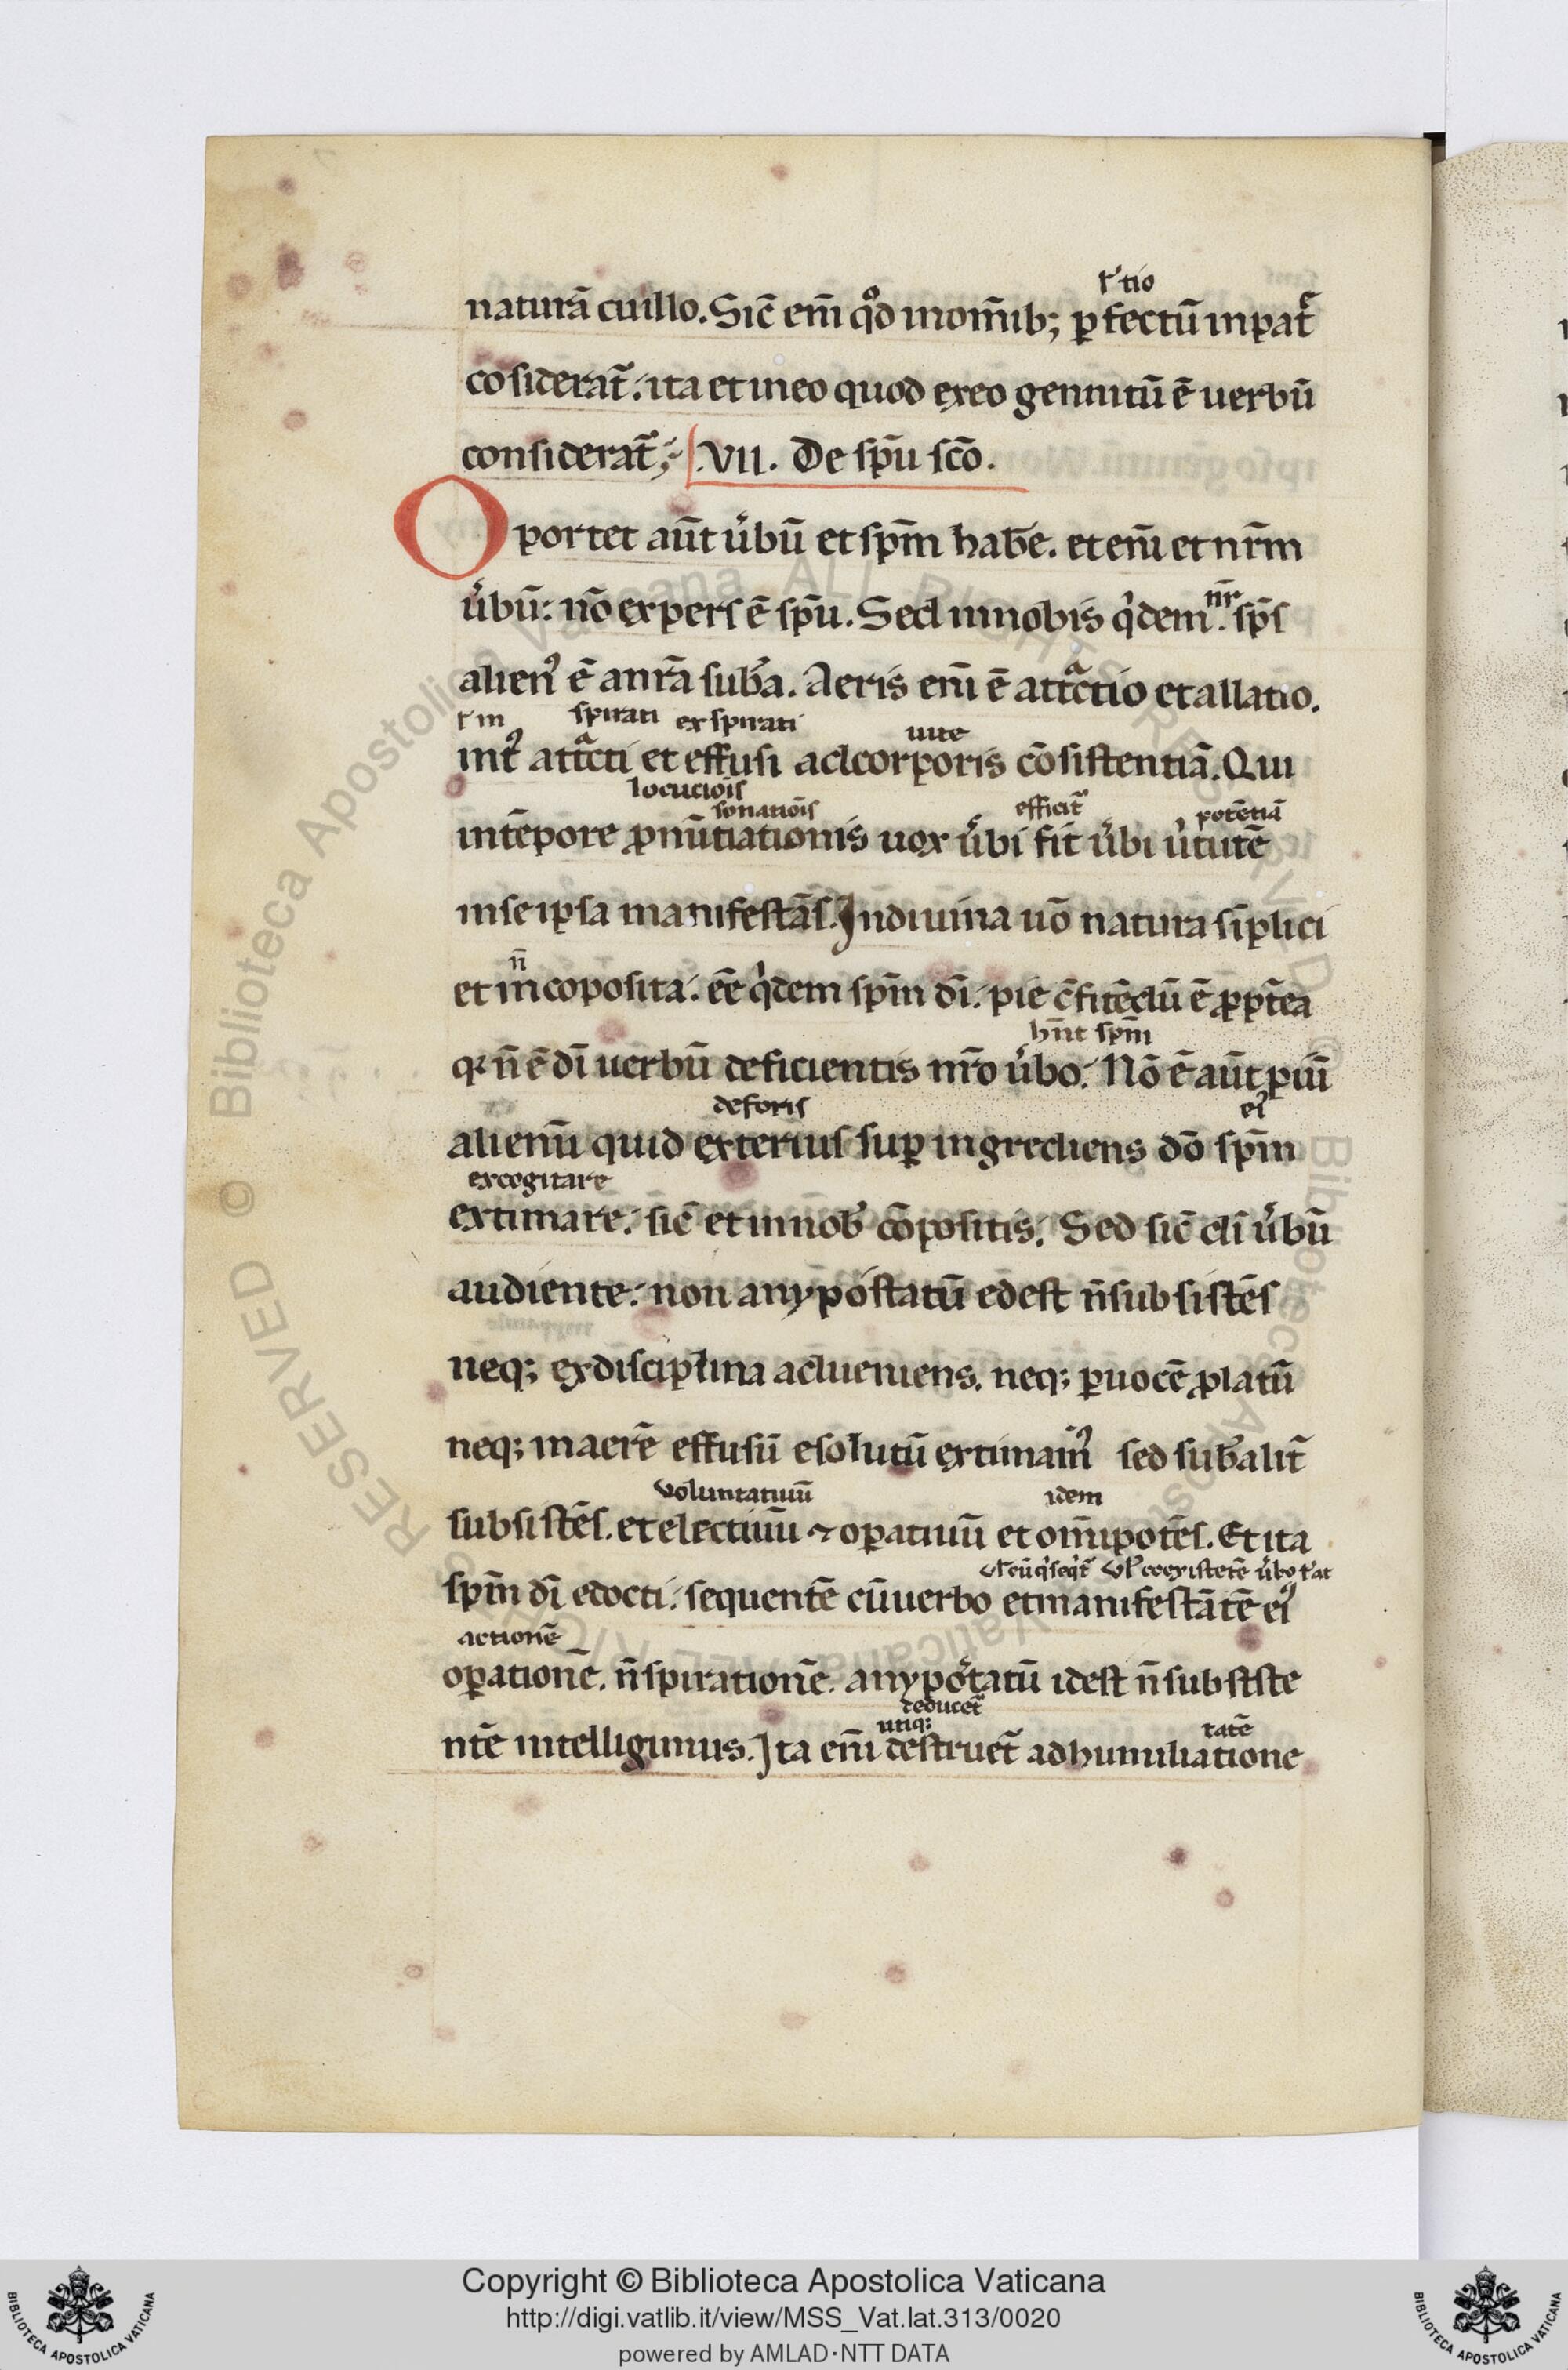 ł tio
naturā cuillo. Sic̄ em̄ qḋ inom̄ib; ꝑfectū inpat̃
cosiderat̃. ita et ineo quod exeo gennitū ē uerbū
considerat̃; .VII. De sp̄u sc̄o.
Oportet aūt u̓bū et sp̄m hab̄e. et em̄ et nr̄m
nr̄
u̓bū: nō expers ē sp̄u. Sed innobis q̇dem. sp̄s
alien⁹ ē anr̄a sub̄a. Aeris em̄ ē attͣctio et allatio.
ł in spirati exspirati uite
int⁹ attͣcti et effusi ad corporis cōsistentiā. Qui
locuciōis
sonatiōis efficit̃ potētiā
intēpore ꝓnūtiationis uox u̓bi fit u̓bi u̓tutē
inseipsa manifestās. Indiuina uō natura siplici
n̄
et incoposita. ēē q̇dem sp̄m dī. pie c̄fitēdū ē ꝓpt̄ea
hn̄t sp̄m
qꝛ n̄ ē dī uerbū deficientis nr̄o u̓bo. Nō ē aūt piū
deforis ei⁹
alienū quid exterius suꝑ ingrediens dō sp̄m
excogitare
extimare. sic̄ et innob̓ cōpositis. Sed sic̄ di u̓bū
audiente. non anypostatū edest n̄subsistēs
neq; exdisciplina adueniens. neq; ꝑuocē ꝓlatū
neq; inaerē effusū esolutū extimam̄⁹ sed sub̄alit̃
uoluntatiuū idem
subsistēs. et electiuū ⁊ oꝑatiuū et om̄ipotēs. Et ita
uł eūq̇seq̇t̃ uł coexistetē u̓bo łat
sp̄m dī edocti. sequentē cūuerbo etmanifestātē ei⁹
actionē
oꝑationē. n̄spirationē. anypo̓tatū idest n̄subsiste
deducet̃
utiq; tatē
ntē intelligimus. Ita em̄ destruet̃ adhumiliatione
Copyright © Biblioteca Apostolica Vaticana
http://digi.vatlib.it/view/MSS_Vat.lat.313/0020
powered by AMLAD·NTT DATA
BIBLIOTECA APOSTOLICA VATICANA
BIBLIOTECA APOSTOLICA VATICANA